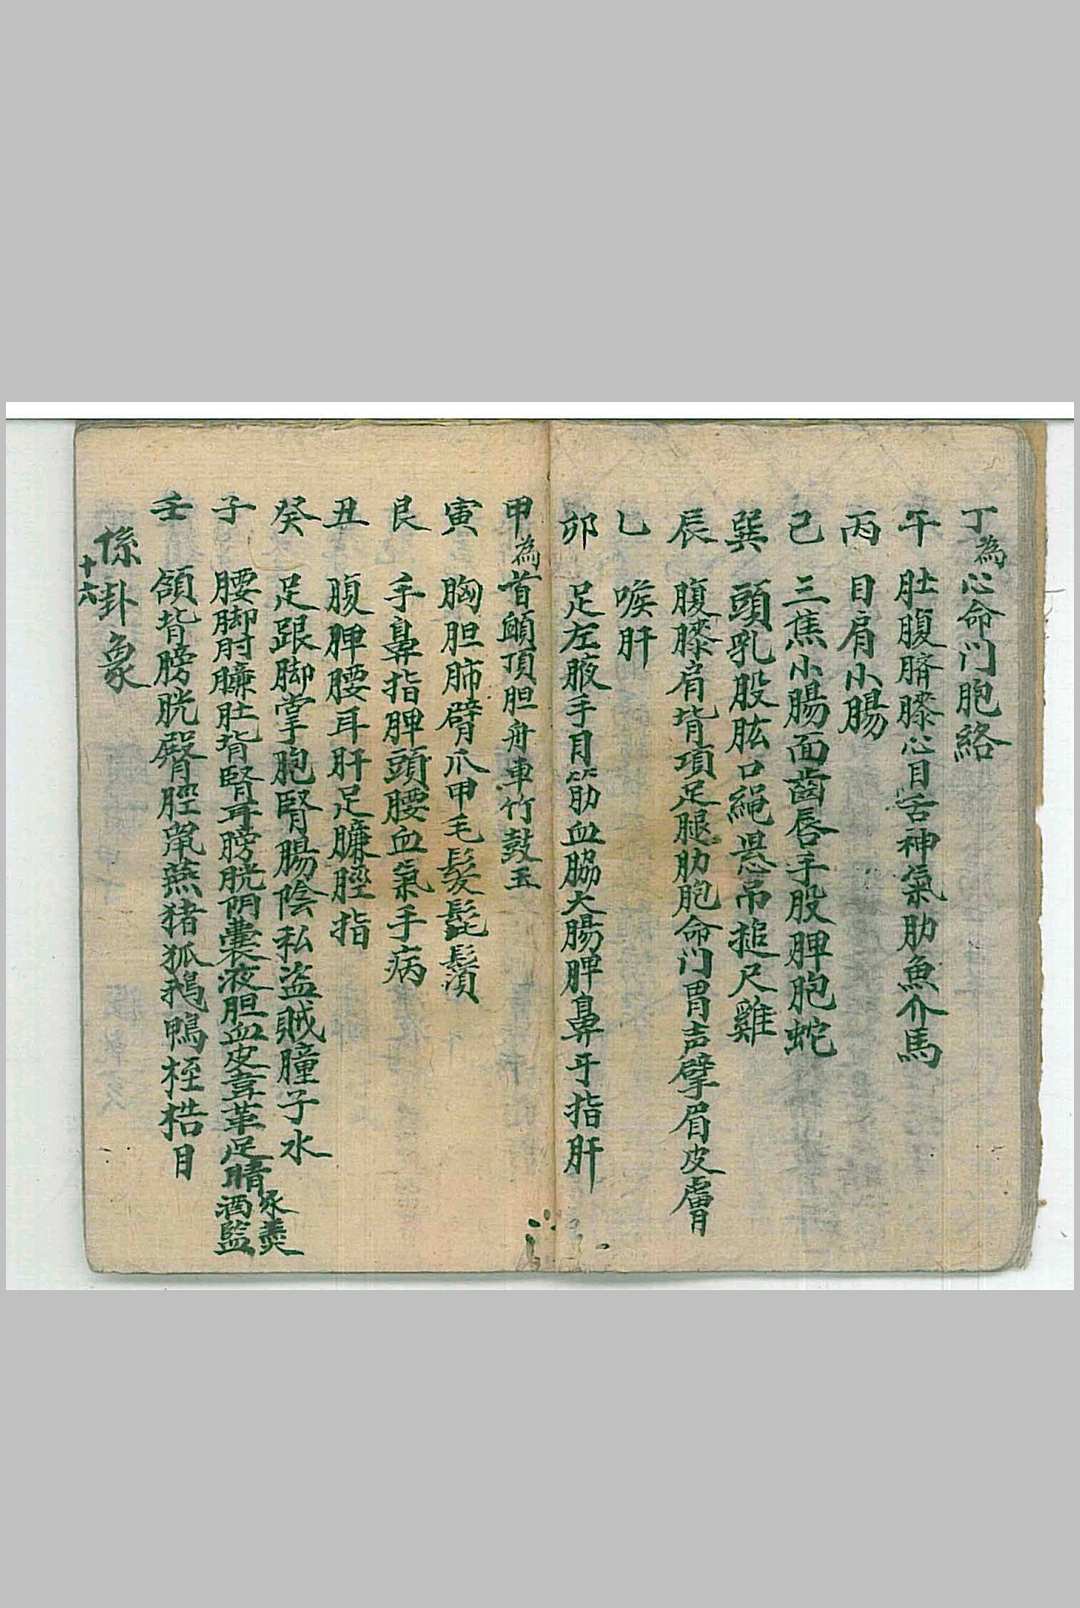 丁為心命门胞絡
午 肚腹臍膝心目舌神氣肋魚介馬
丙 目肩小腸
己 三蕉小腸面齒唇手股脾胞蛇
巽 頭乳股肱口繩㬎吊搥尺雞
辰 腹膝肩背項足腿肋胞命门胃声臂眉皮膚
乚 喉肝
卯 足左腋手目筋血脇大腸脾鼻牙指肝
甲為首顱頂胆舟車竹鼓五
寅 胸胆肺臂爪甲毛髮髭鬚
艮 手鼻指脾頭腰血氣手病
丑 腹脾腰耳肝足臁脛指
癸 足跟脚掌胞腎腸陰私盜賊瞳子水
子 腰脚肘臁肚背腎耳膀胱阴囊液胆血皮韋革足睛豕羹酒監
壬 頷背膀胱臀脛鼠燕猪狐鵝鴨桎梏目
係卦象
十六